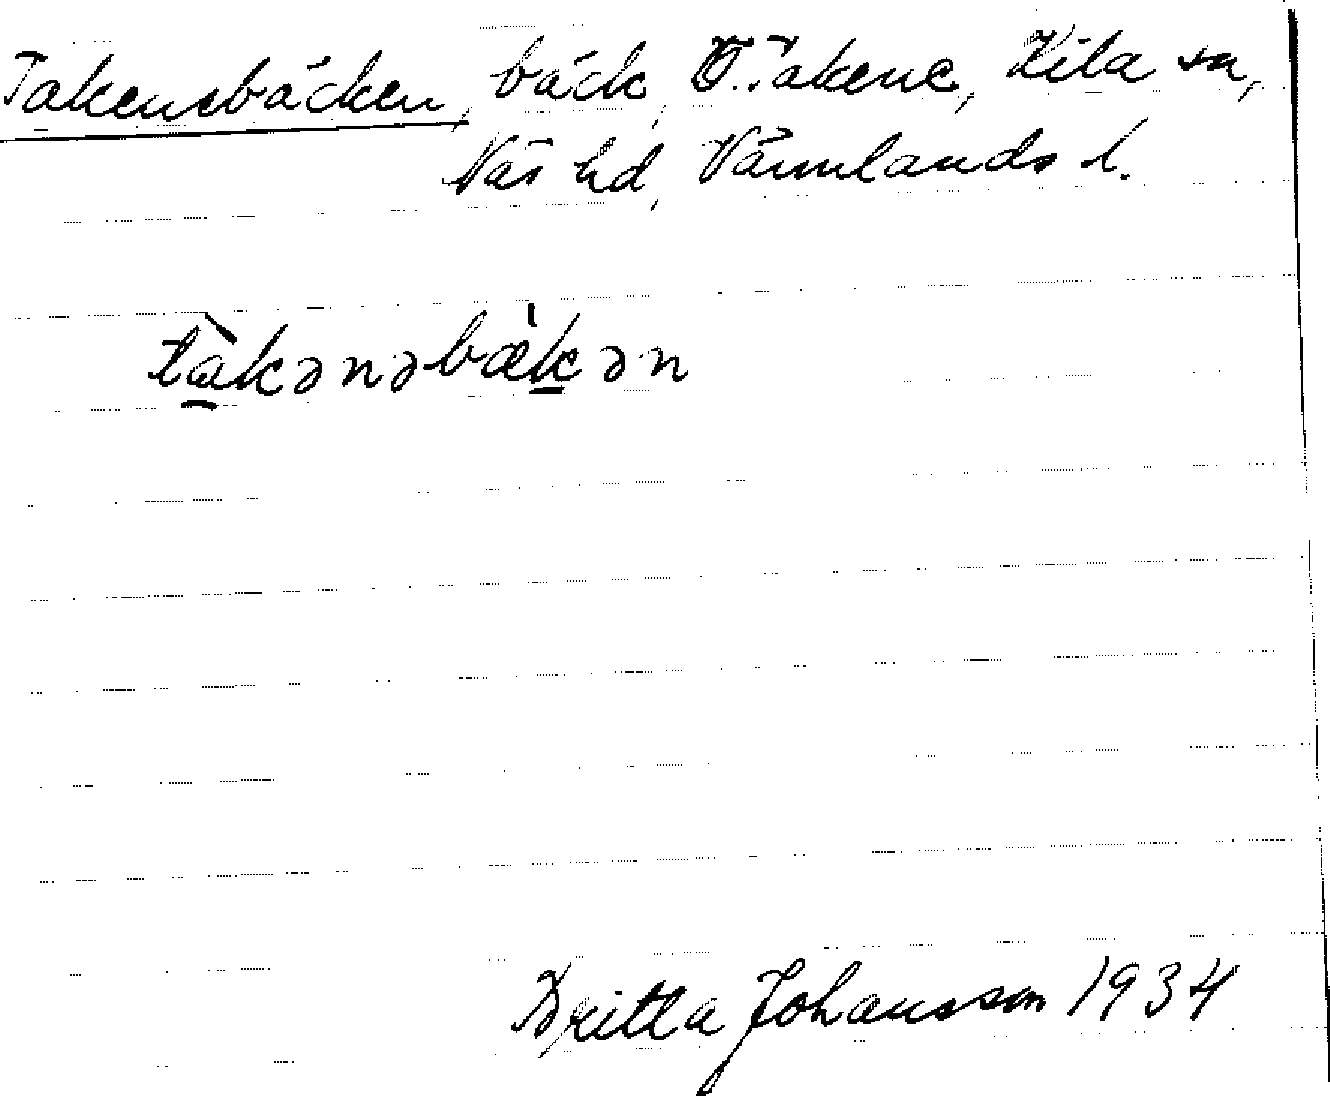 Takenebäcken, bäck, Takene, Kila sn,
Näs hd, Värmlands l.
tàkənəbæ̀kən
Britta Johansson 1934